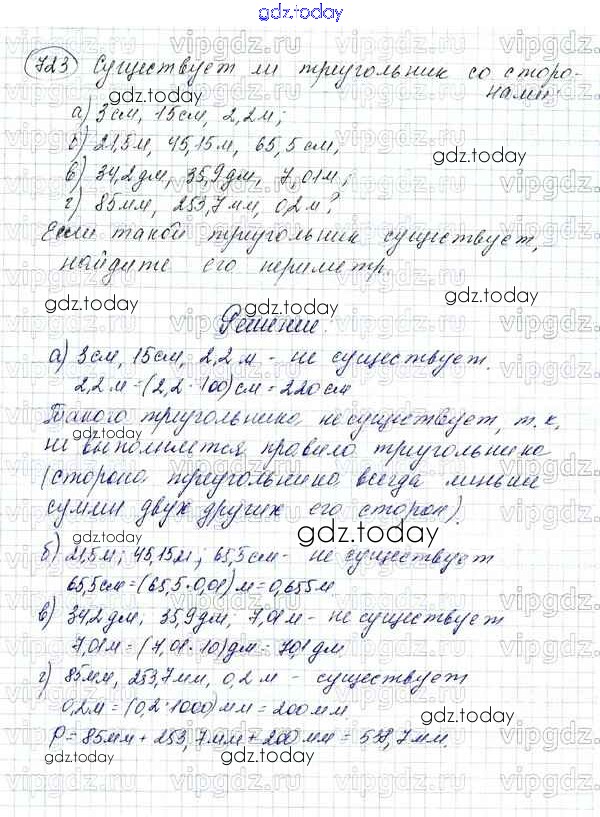 gdz.today
723 Существует ли треугольник со сторо-
нами:
а) 3см, 15см, 2,2м;
б) 21,5м, 45,15м, 65,5см;
в) 34,2дм, 35,9дм, 7,01м;
г) 85мм, 253,7мм, 0,2м?
Если такой треугольник существует,
найдите его периметр.
Решение.
а) 3см, 15см, 2,2м - не существует.
2,2м=(2,2·100)см=220см
Такого треугольника не существует, т.к.
не выполняется правило треугольника
(сторона треугольника всегда меньше
суммы двух других его сторон).
б) 21,5м; 45,15м; 65,5см - не существует
65,5см=(65,5·0,01)м=0,655м
в) 34,2дм, 35,9дм, 7,01м - не существует
7,01м=(7,01·10)дм=70,1дм.
г) 85мм, 253,7мм, 0,2м - существует
0,2м=(0,2·1000)мм=200мм.
P=85мм+253,7мм+200мм=538,7мм.
gdz.today